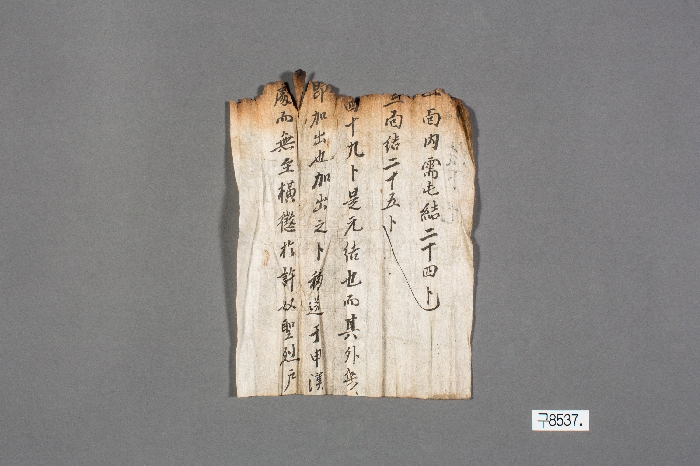 面內需屯結二十四卜
面結二十五卜
四十九卜是元結也而其外無
即加出也加出之卜移送于申漢
處而無至橫徵於許奴聖烈戶
구8537.